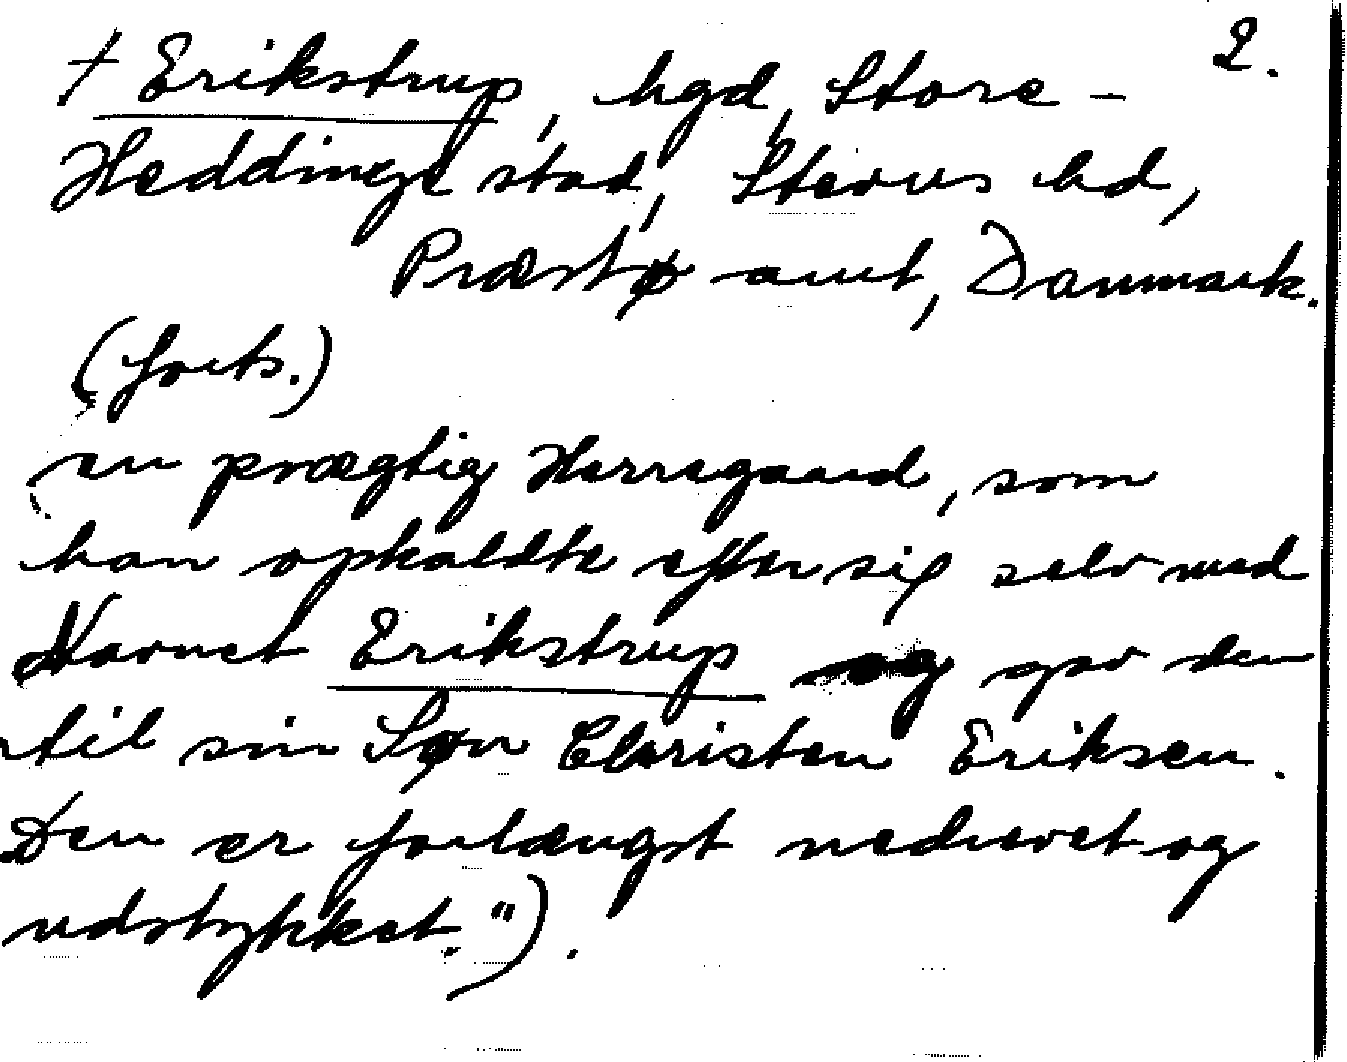 2.
† Erikstrup, hgd, Store-
Heddinge stad, Stevns hd,
Præstø amt, Danmark.
(forts.)
en prægtig Herregaard, som
han opkaldte efter sig selv med
Navnet Erikstrup og gav den
til sin Søn Christen Eriksen.
Den er forlængst nedrevet og
udstykket.").